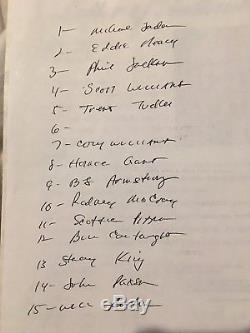 1- Micheal Jordan
2- Eddie Nealy
3- Phil Jackson
4- Scott Williams
5- Trent Tucker
6-
7- Cory Williams
8- Horace Grant
9- BJ Armstrong
10- Rodney McCray
11- Scottie Pippen
12 Bill Cartwright
13 Stacy King
14- John Paxson
15- Will